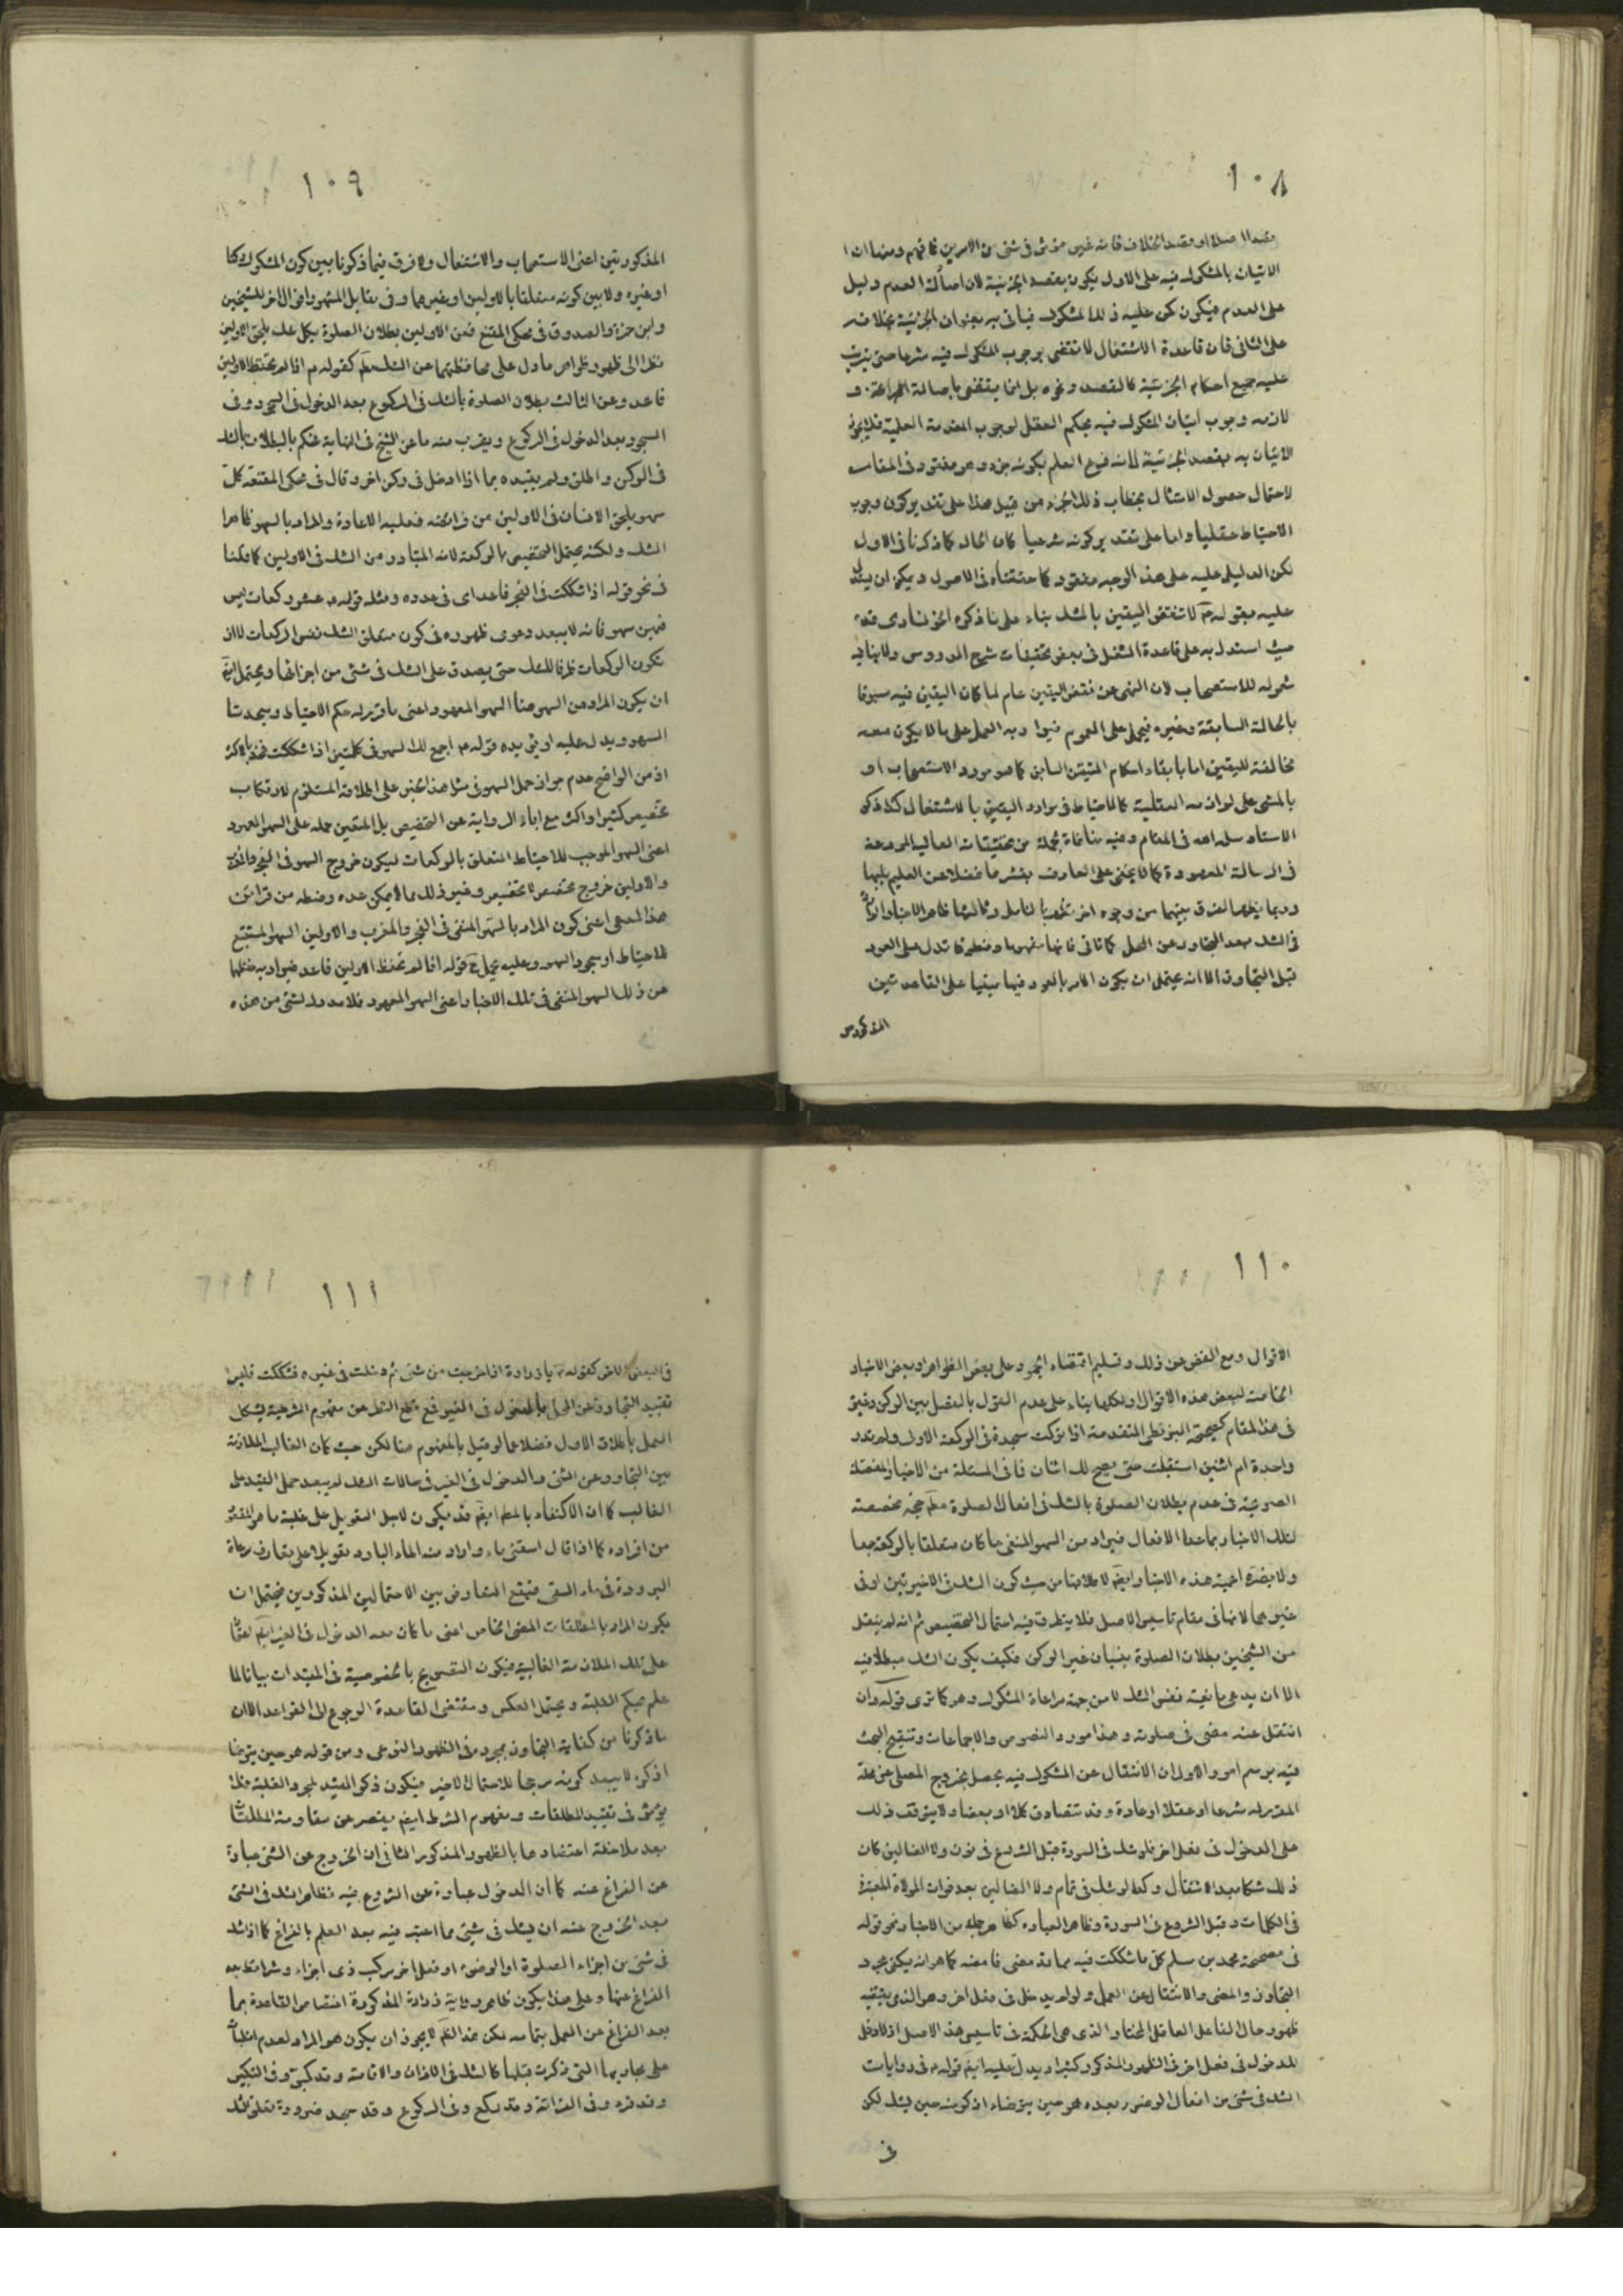 ١٠٨
الاتيان بالمشكوك فيه على الاول يكون بقصد الجزئية لان اصالة العدم دليل
على العدم فيكون كمن عليه ذلك المشكوك فياتى به بعنوان الجزئية بخلافه
على الثانى فان قاعدة الاشتغال لا تقتضى بوجوب المشكوك فيه شرعا حتى يترتب
عليه جميع احكام الجزئية كالقصد ونحوه بل انما يقتضى باصالة البرائة و
لازمه وجوب اتيان المشكوك فيه بحكم العقل لوجوب المقدمة العلمية فلا يجوز
الاتيان به بقصد الجزئية لانه فرع العلم بكونه جزء وهو مفقود فى المقام
لاحتمال حصول الامتثال بخطاب ذلك الجزء من قبل هذا على تقدير كون وجوب
الاحتياط عقليا واما على تقدير كونه شرعيا كان الحال كما ذكرنا فى الاول
لكن الدليل عليه على هذا الوجه مفقود كما حققناه فى الاصول ويمكن ان يستدل
عليه بقوله لا تنقض اليقين بالشك بناء على ما ذكره الخونسارى قده
حيث استدل به على قاعدة الشغل فى بعض تحقيقات شرح الدروس ولا ينافيه
شموله للاستصحاب لان النهى عن نقض اليقين عام لما كان اليقين فيه مسبوقا
بالحالة السابقة وغيره فيحمل على العموم فيراد به العمل على ما لا يكون معه
مخالفة لليقين اما بابقاء احكام المتيقن السابق كما هو مورد الاستصحاب او
بالمشى على لوازمه العقلية كالاحتياط فى موارد اليقين بالاشتغال كذا ذكره
الاستاد سلمه الله فى المقام وفيه منافاة لجملة من تحقيقات العالية المودعة
فى الرسالة المعهودة كما لا يخفى على العارف بقشرها فضلا عن العليم بلبها
وربما يظهر الفرق بينهما من وجوه اخر تظهر بالتامل وثالثها ظاهر الاخبار الواردة
فى الشك بعد التجاوز عن المحل كما تاتى فانها بمفهومها ومنطوقها تدل على العود
قبل التجاوز الا انه يحتمل ان يكون الامر بالعود فيها مبنيا على القاعدتين
المذكورتين
١٠٩
المذكورتين اعنى الاستصحاب والاشتغال ولا فرق فيما ذكرنا بين كون المشكوك ركنا
او غيره ولا بين كونه متعلقا بالاولين او غيرهما وفى مقابل المشهور اقوال اخر للشيخين
وابن حمزة والصدوق فى محكى المقنع فعن الاولين بطلان الصلوة بكل شك يلحق الاولين
نظرا الى ظهور ظواهر ما دل على محافظتهما عن الشك مطلقا كقوله ع اذا لم تحفظ الاولين
فاعد وعن الثالث بطلان الصلوة بالشك فى الركوع بعد الدخول فى السجود وفى
السجود بعد الدخول فى الركوع ويقرب منه ما عن الشيخ فى النهاية فحكم بالبطلان بالشك
فى الركن واطلق ولم يقيده بما اذا دخل فى ركن اخر وقال فى محكى المقنعة كل
سهو يلحق الانسان فى الاولين من فرائضه فعليه الاعادة والمراد بالسهو ظاهرا
الشك ولكنه يحتمل التخصيص بالركعة لانه المتبادر من الشك فى الاولين كما قلنا
فى نحو قوله اذا شككت فى الفجر فاعد اى فى عدده ومثله قوله ع عشر ركعات ليس
فيهن سهو فانه لا يبعد دعوى ظهوره فى كون متعلق الشك نفس الركعات لا ان
يكون الركعات ظرفا للشك حتى يصدق على الشك فى شئ من اجزائها ويحتمل ايضا
ان يكون المراد من السهو هنا السهو المعهود اعنى ما قرر له حكم الاحتياط وسجدتا
السهو ويدل عليه او يؤيده قوله ع اجمع لك السهو فى كلمتين اذا شككت فخذ بالاكثر
اذ من الواضح عدم جواز حمل السهو فى مثل هذا الخبر على اطلاقه المستلزم لارتكاب
تخصيص كثير او اكثر مع اباء الرواية عن التخصيص بل المتعين حمله على السهو المعهود
اعنى السهو الموجب للاحتياط المتعلق بالركعات ليكون خروج السهو فى الفجر والمغرب
والاولين خروج تخصص لا تخصيص وغير ذلك مما لا يمكن عده وضبطه من قرائن
هذا المعنى اعنى كون المراد بالسهو المنفى فى الفجر والمغرب والاولين السهو المستتبع
للاحتياط او سجود السهو وعليه يحمل قوله اذا لم تحفظ الاولين فاعد فيراد به حفظهما
عن ذلك السهو المنفى فى تلك الاخبار اعنى السهو المعهود فلا مدرك لشئ من هذه
١١٠
الاقوال ومع الغض عن ذلك وتسليم اقتضاء الجمود على بعض الظواهر وبعض الاخبار
الخاصة لبعض هذه الاقوال او لكلها بناء على عدم القول بالفصل بين الركن وغيره
فى هذا المقام كصحيحة البزنطى المتقدمة اذا تركت سجدة فى الركعة الاولى ولم تدر
واحدة ام اثنين استقبلت حتى يصح لك اثنان فما فى المسئلة من الاخبار المفصلة
الصريحة فى عدم بطلان الصلوة بالشك فى افعال الصلوة مطلقا حجة مخصصة
لتلك الاخبار بما عدا الافعال فيراد من السهو المنفى ما كان متعلقا بالركعة جمعا
غيرهما لانها فى مقام تاسيس الاصل فلا يتطرق فيه احتمال التخصيص ثم انه لم ينقل
من الشيخين بطلان الصلوة بنسيان غير الركن فكيف يكون الشك مبطلا فيه
الا ان يدعى مانعية نفس الشك لا من جهة مراعاة المشكوك وهو كما ترى قوله وان
انتقل عنه مضى فى صلوته وهذا مورد النصوص والاجماعات وتنقيح البحث
فيه برسم امور الاول ان الانتقال عن المشكوك فيه يحصل بخروج المصلى عن محله
المقرر له شرعا او عقلا او عادة وقد تتصادق كلا او بعضا ولا يتوقف ذلك
على الدخول فى فعل اخر فلو شك فى السورة قبل الشروع فى نون ولا الضالين كان
ذلك شكا بعد الانتقال وكذا لو شك فى تمام ولا الضالين بعد فوات الموالاة المعتبرة
فى الكلمات وقبل الشروع فى السورة وظاهر العبارة كظاهر جملة من الاخبار نحو قوله
فى مصححة محمد بن مسلم كل ما شككت فيه مما قد مضى فامضه كما هو انه يكفى مجرد
التجاوز والمضى والانتقال عن العمل ولو لم يدخل فى فعل اخر وهو الذى يقتضيه
ظهور حال الفاعل العاقل المختار الذى هى الحكمة فى تاسيس هذا الاصل اذ لا دخل
للدخول فى فعل اخر فى الظهور المذكور كثيرا ويدل عليه ايضا قوله ع فى روايات
الشك فى شئ من افعال الوضوء بعده هو حين يتوضاء اذكر منه حين يشك لكن
فى
١١١
فى البعض الاخر كقوله ع يا زرارة اذا خرجت من شئ ثم دخلت فى غيره فشككت فليس
تقييد التجاوز عن المحل بالدخول فى الغير فمع قطع النظر عن مفهوم الشرطية يشكل
العمل باطلاق الاول فضلا عما لو قيل بالمفهوم هنا لكن حيث كان الغالب الملازمة
بين التجاوز عن الشئ والدخول فى الغير فى حالات الشك لم يبعد حمل القيد على
الغالب كما ان الاكتفاء بالمطلق ايضا قد يكون لاجل التعويل على غلبة ما هو المقيد
من افراده كما اذا قال اسقنى ماء واراد منه الماء البارد تعويلا على تعارف رعاة
البرودة فى ماء السقى فيقع التعارض بين الاحتمالين المذكورين فيحتمل ان
يكون المراد بالمطلقات المعنى الخاص اعنى ما كان معه الدخول فى الغير ايضا
على تلك الملازمة الغالبية فيكون التصريح بالخصوصية فى المقيدات بيانا لما
علم بحكم الغلبة ويحتمل العكس ومقتضى القاعدة الرجوع الى القواعد الا ان
ما ذكرنا من كفاية التجاوز بمجرده فى الظهور النوعى ومن قوله هو حين يتوضا
اذكر لا يبعد كونه مرجحا للاحتمال الاخير فيكون ذكر القيد لمجرد الغلبة فلا
يؤثر فى تقييد المطلقات ومفهوم الشرط ايضا يقصر عن مقاومة المطلقات
بعد ملاحظة اعتضادها بالظهور المذكور الثانى ان الخروج عن الشئ عبارة
عن الفراغ عنه كما ان الدخول عبارة عن الشروع فيه فظاهر الشك فى الشئ
بعد الخروج عنه ان يشك فى شئ مما اعتبر فيه بعد العلم بالفراغ كما اذا شك
فى شئ من اجزاء الصلوة او الوضوء او فعل اخر مركب ذى اجزاء وشرائط بعد
الفراغ عنها وعلى هذا يكون ظاهر رواية زرارة المذكورة اختصاص القاعدة بما
بعد الفراغ عن العمل بتمامه لكن هذا الظاهر لا يجوز ان يكون هو المراد لعدم انطباقه
على مجاريها التى ذكرت قبلها كالشك فى الاذان والاقامة وقد كبر وفى التكبير
وقد قرء وفى القرائة وقد ركع وفى الركوع وقد سجد ضرورة تعلق الشك